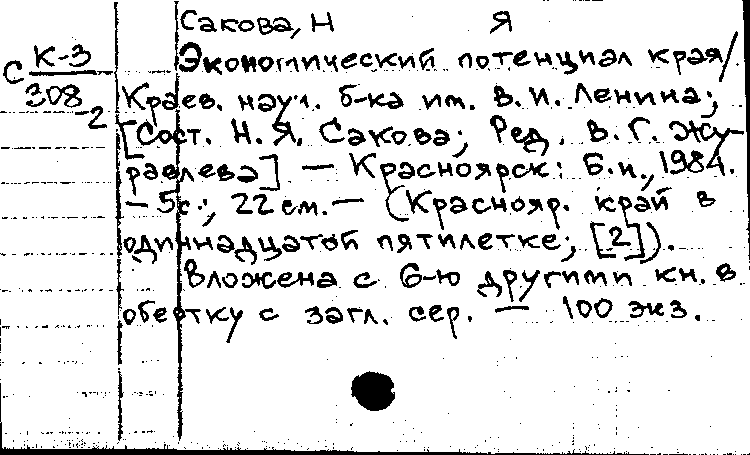 Сакова, Н Я
Экономический потенциал края/
С К-3
308-2
Краев. науч. б-ка им. В. И. Ленина;
[Сост. Н. Я. Сакова; Ред. В. Г. Жу-
равлева]. — Красноярск: Б.и., 1984.
— 5с.; 22 см. — (Краснояр. край в
одиннадцатой пятилетке; [2]).
Вложена с 6-ю другими кн. в
обертку с загл. сер. — 100 экз.